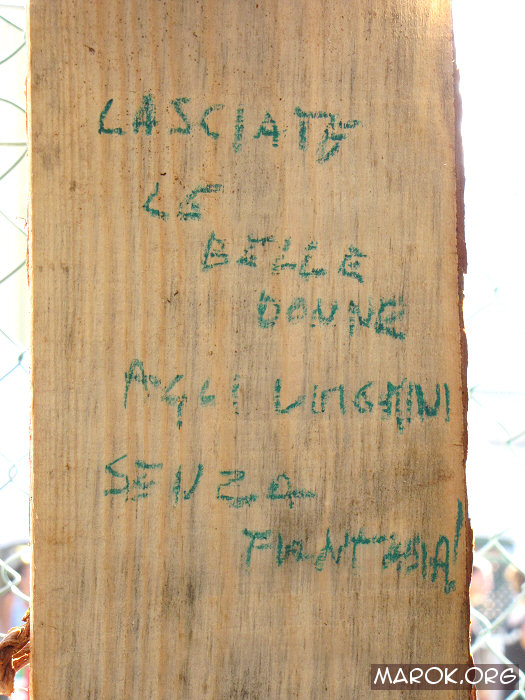 LASCIATE
LE
BELLE
DONNE
AGLI
SENZA
FIANTASIA!
MAROK.ORG